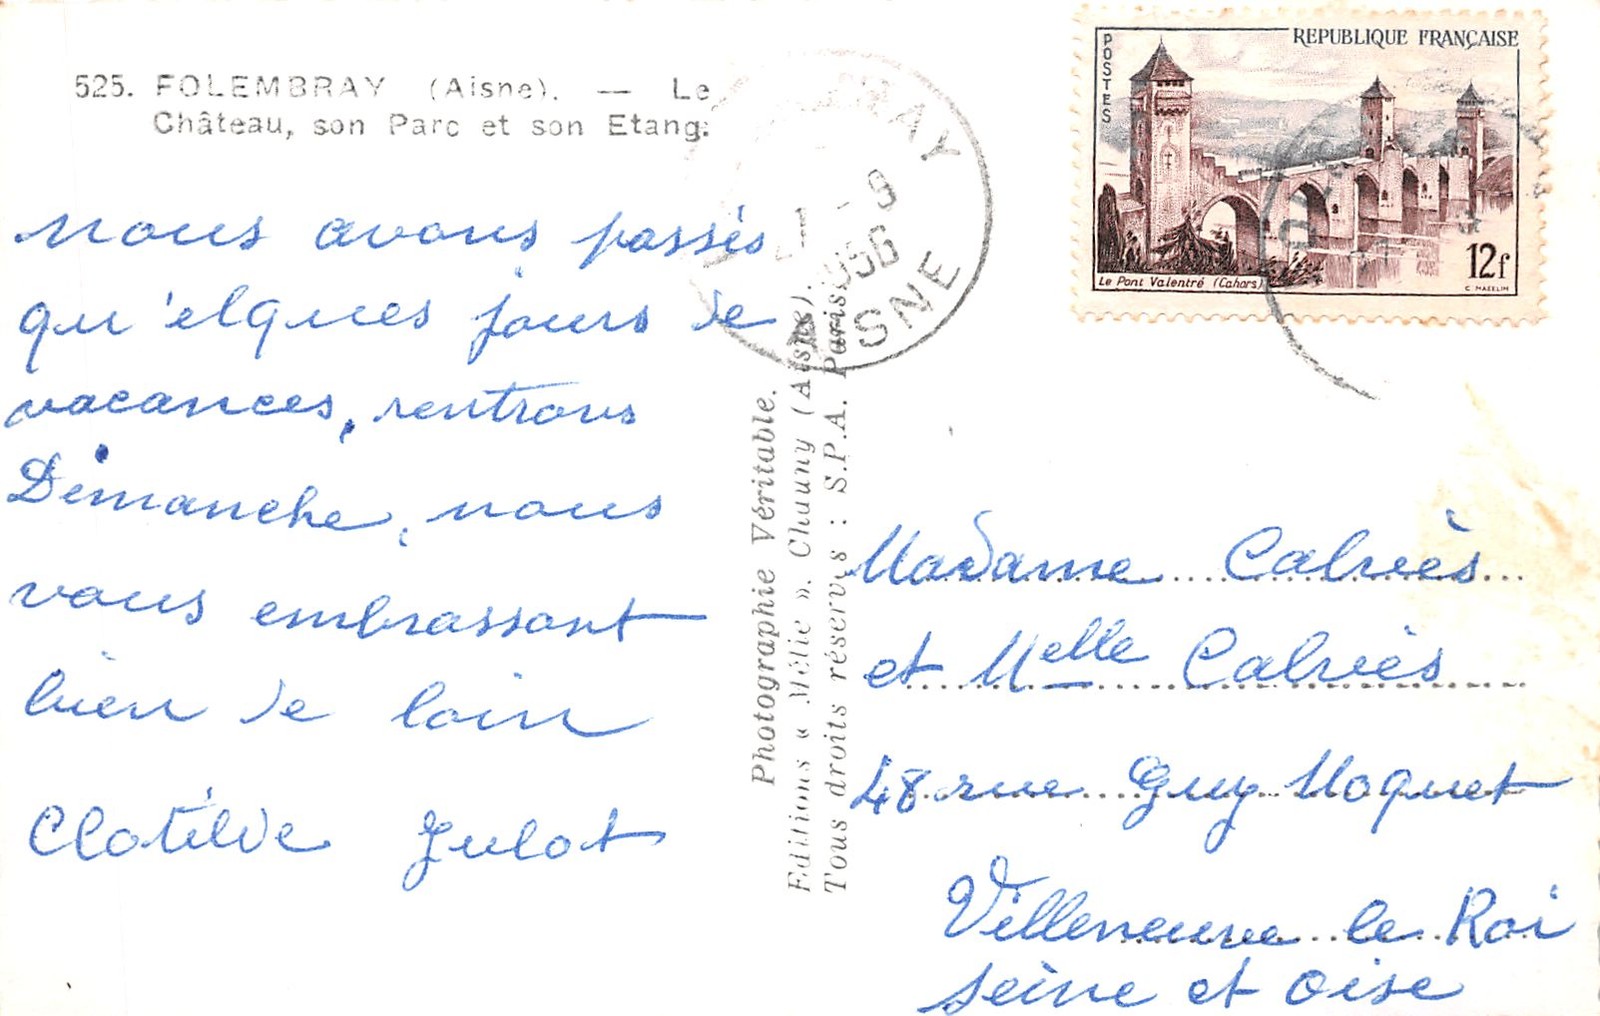 525. FOLEMBRAY (Aisne). — Le
Château, son Parc et son Etang.
nous avons passés
qu'elques jours de
vacances, rentrons
Dimanche, nous
vous embrassant
bien de loin
Clotilde Julot
Photographie Véritable.
Editions « Mélie ». Chauny (Aisne).
Tous droits réservés : S.P.A. Paris.
BRAY
1 - 9
1956
AISNE
POSTES
REPUBLIQUE FRANÇAISE
Le Pont Valentré (Cahors)
12f
C. MAZELIN
Madame Calviès
et Melle Calviès
48 rue Guy Moquet
Villeneuve le Roi
seine et oise